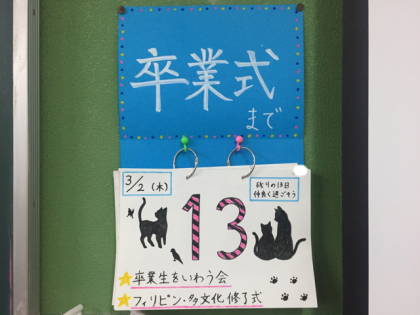 卒業式
まで
3/2(木)
残りの13日
仲良く過ごそう
13
卒業生をいわう会
フィリピン・多文化修了式